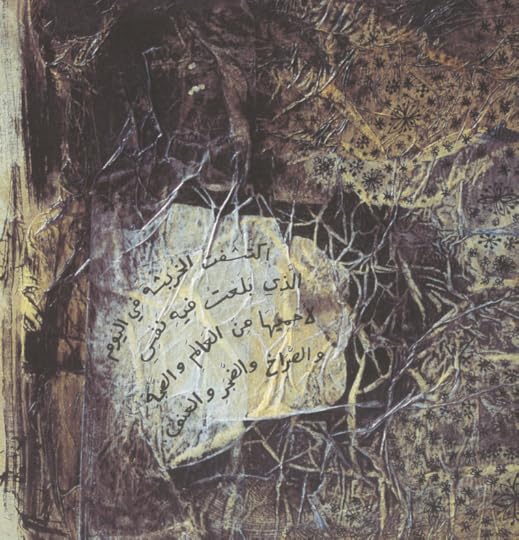 اكتشفت الخربشة في اليوم
الذي بلعت فيه نفسي
لاحميها من العالم
والصراخ والضجر والعنف